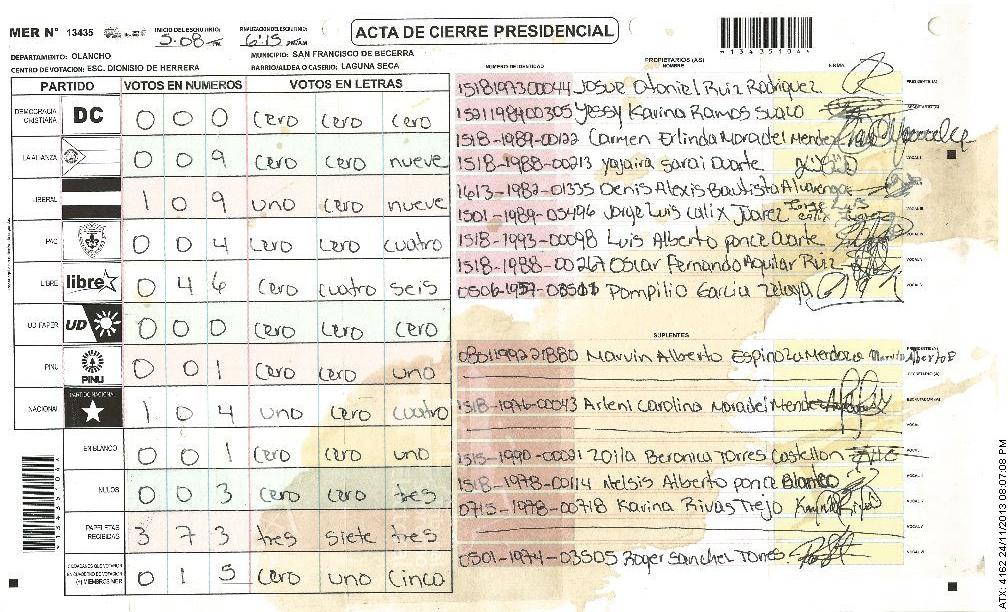 MER N° 13435
INICIO DEL ESCRUTINIO: 5:08 PM
FINALIZACION DEL ESCRUTINIO: 6:15 PM/AM
ACTA DE CIERRE PRESIDENCIAL
1343510 44
DEPARTAMENTO: OLANCHO
MUNICIPIO: SAN FRANCISCO DE BECERRA
CENTRO DE VOTACION: ESC. DIONISIO DE HERRERA
BARRIO/ALDEA O CASERIO: LAGUNA SECA
PARTIDO VOTOS EN NUMEROS VOTOS EN LETRAS
DEMOCRACIA CRISTIANA DC 0 0 0 cero cero cero
LA ALIANZA 0 0 9 cero cero nueve
LIBERAL 1 0 9 uno cero nueve
PAC 0 0 4 cero cero cuatro
LIBRE libre 0 4 6 cero cuatro seis
UD-FAPER UD 0 0 0 cero cero cero
PINU PINU 0 0 1 cero cero uno
NACIONAL PARTIDO NACIONAL 1 0 4 uno cero cuatro
EN BLANCO 0 0 1 cero cero uno
NULOS 0 0 3 cero cero tres
PAPELETAS RECIBIDAS 3 7 3 tres siete tres
CIUDADANOS QUE VOTARON EN CUADERNO DE VOTACION (+) MIEMBROS MER 0 1 5 cero uno cinco
PROPIETARIOS (AS)
NUMERO DE IDENTIDAD NOMBRE FIRMA
1518197300044 Josue Otoniel Ruiz Rodriquez
1521198900305 Yessy Karina Ramos Suazo
1518-1989-00122 Carmen Erlinda Moradel Mendez
1518-1988-00213 yajaira sarai Duarte
1613-1982-01335 Denis Alexis Bautista Alvarenga
1501-1989-03496 Jorge Luis calix Juarez Jorge Luis calix Juarez
1518-1993-00098 Luis Alberto ponce Duarte
1518-1988-00267 Oscar Fernando Aguilar Ruiz
Pompilio Garcia Zelaya
SUPLENTES
0801199221880 Marvin Alberto Espinoza Mendoza
1518-1976-00043 Arleni Carolina Moradel Mendez
1515-1990-00091 Zoila Beronica Torres Castellon
1518-1978-00114 Nelsis Alberto ponce Blanco
0715-1978-00718 Karina Rivas Trejo
0501-1974-03505 Roger Sanchez Torres
ATX: 4162 24/11/2013 08:07:08 PM